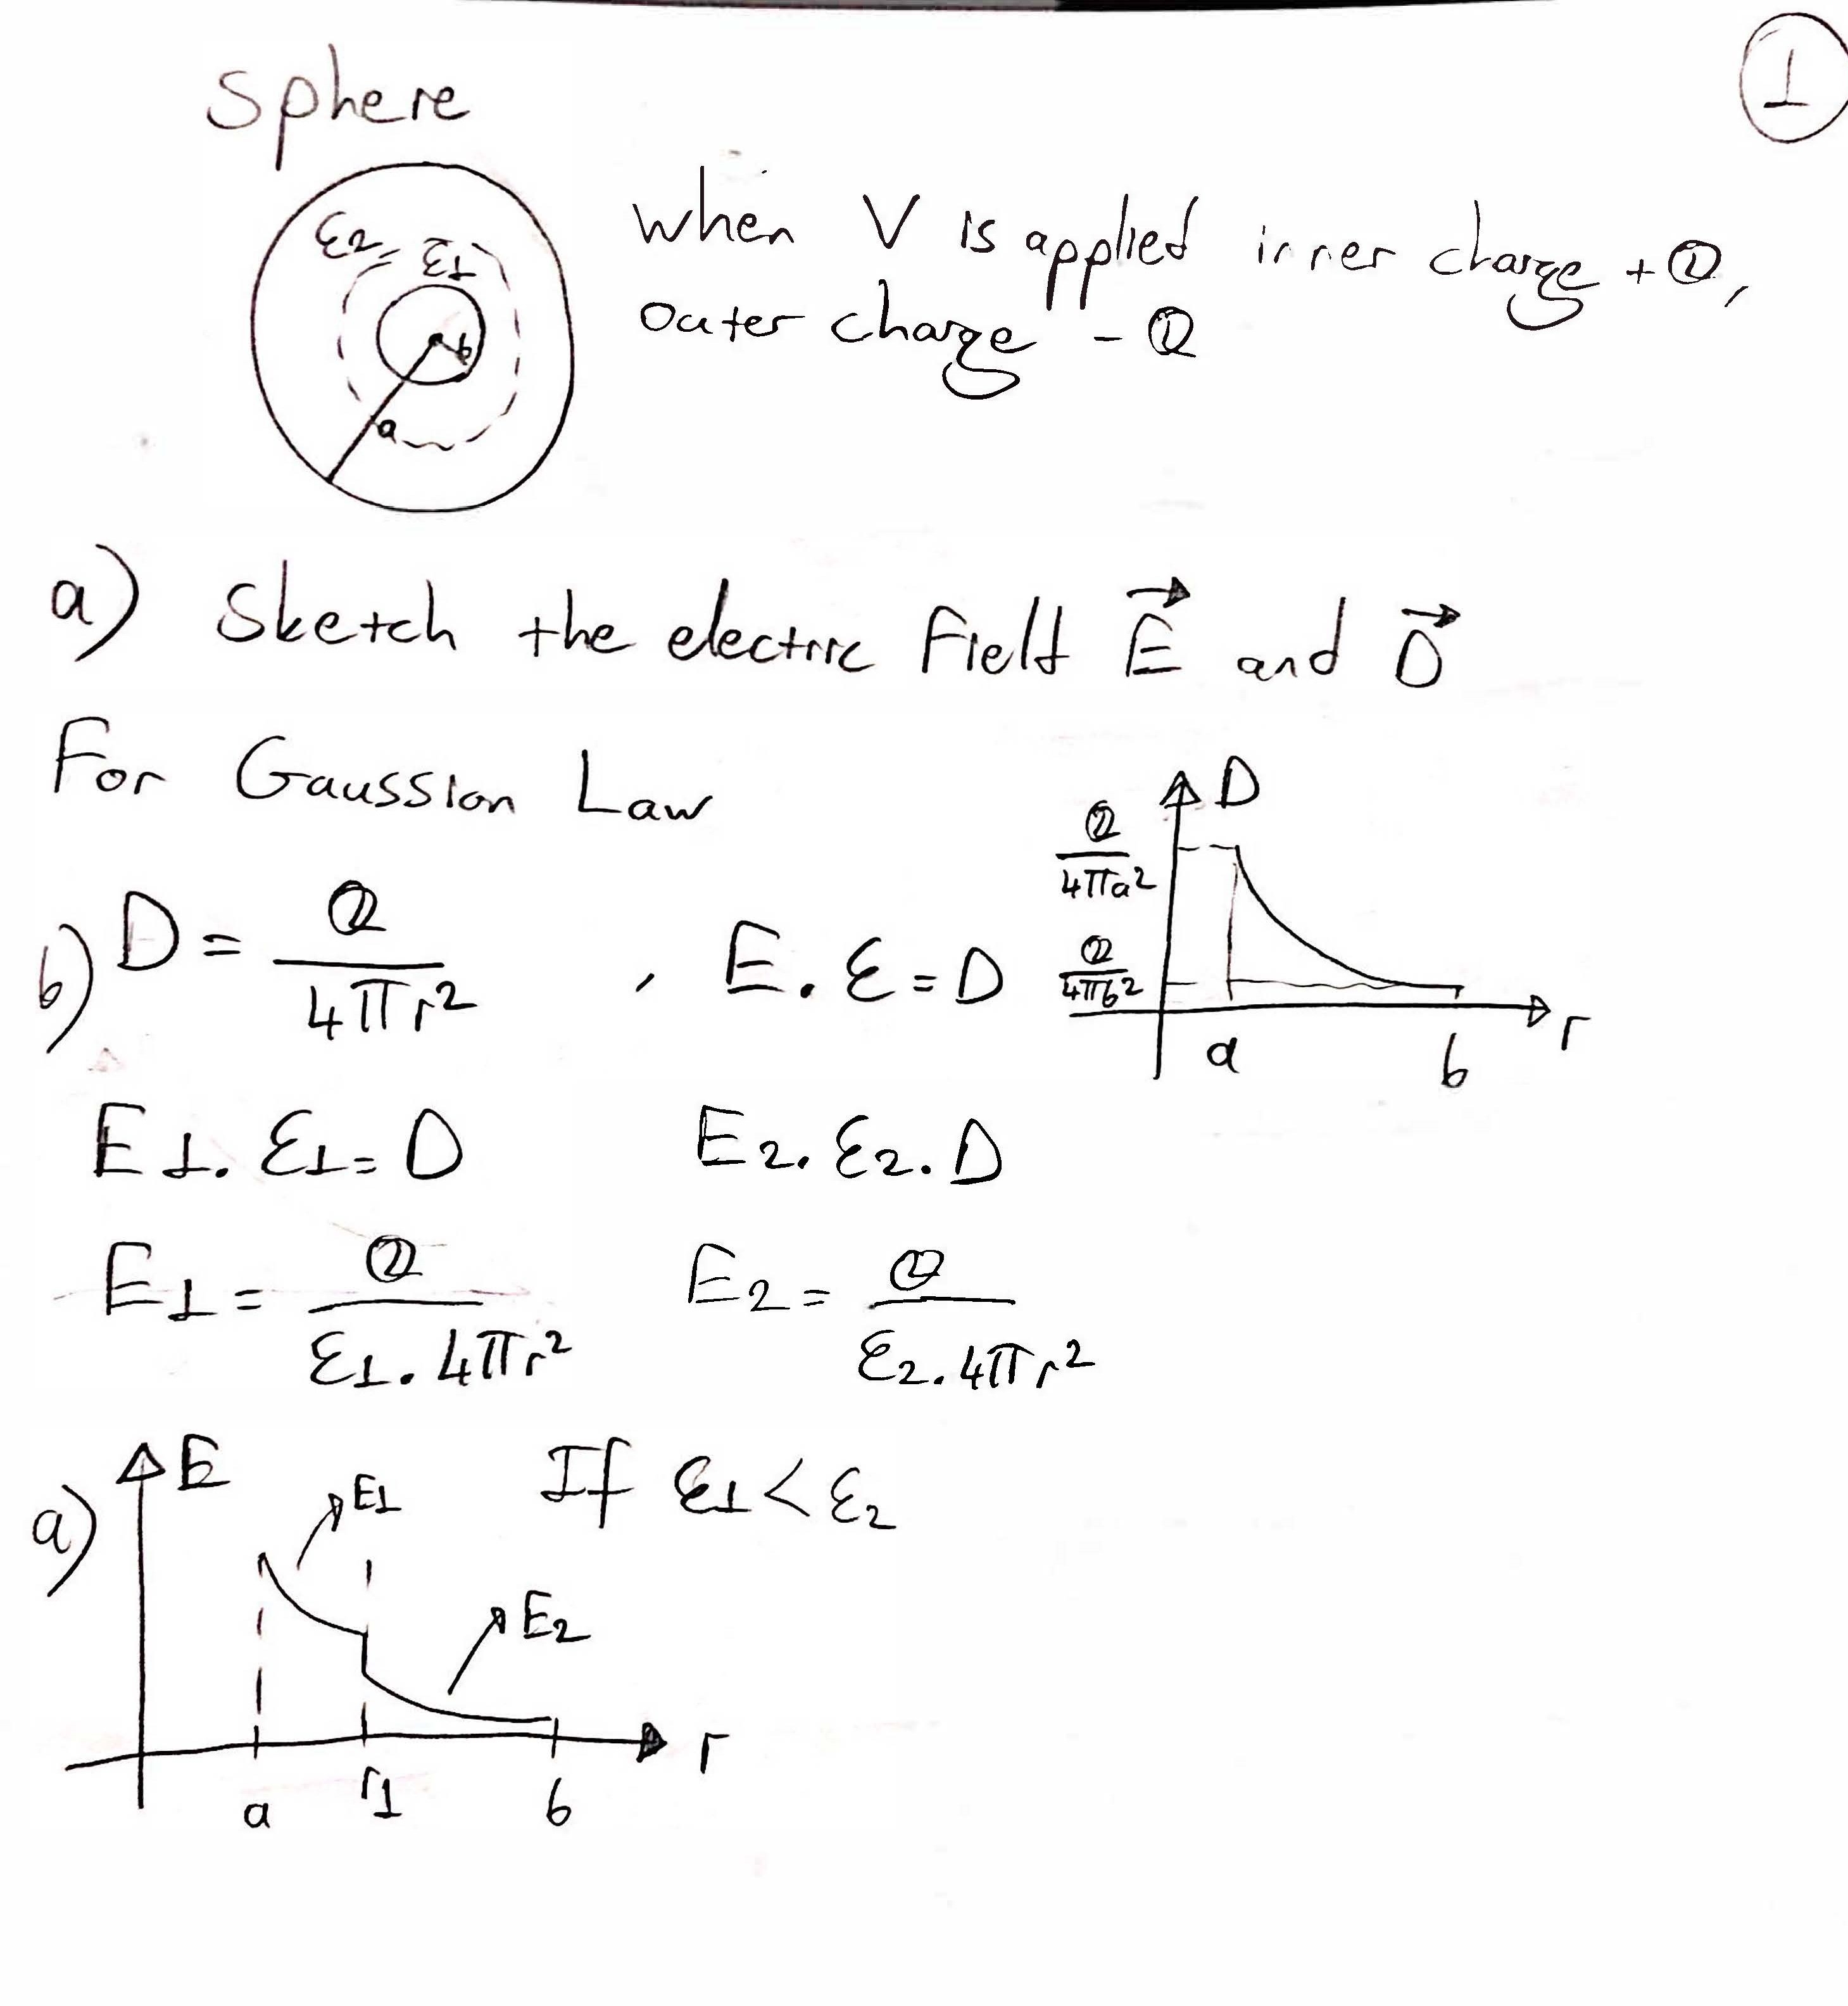 1
Sphere
ε2 ε1
When V is applied inner charge +Q,
outer charge -Q
a
a) Sketch the electric Field E⃗ and D⃗
For Gaussian Law
D
Q/4πa²
b) D = Q/4πr² , E.ε=D
Q/4πb²
a b r
E1.ε1=D E2.ε2.D
E1 = Q/ε1.4πr² E2 = Q/ε2.4πr²
a) E E1 If ε1<ε2
E2
r
a r1 b